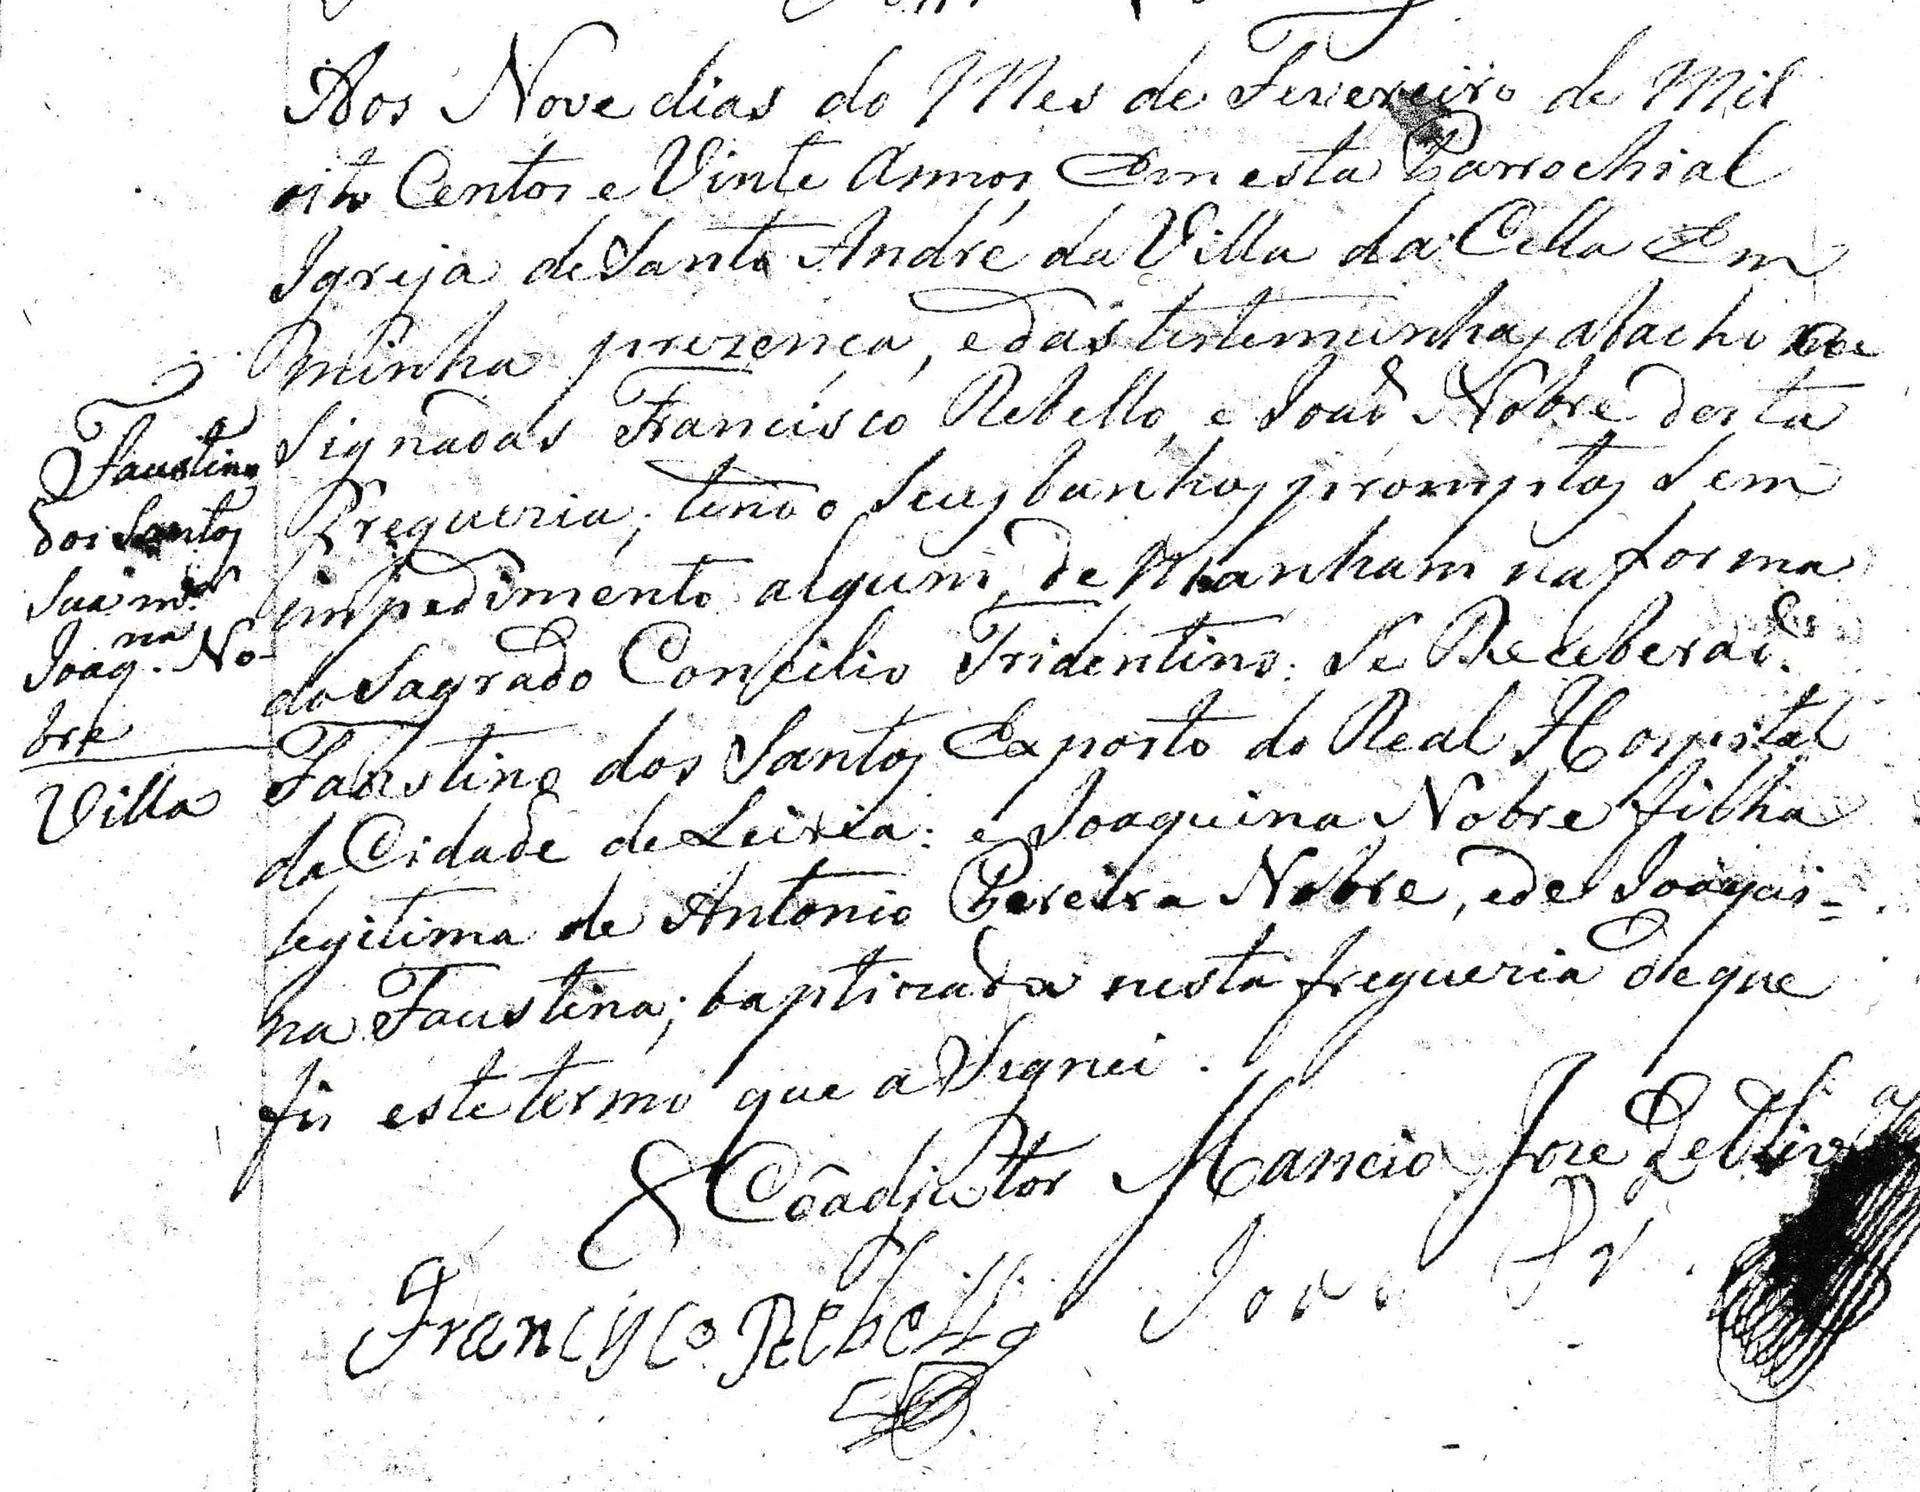 Aos Nove dias do Mes de Fevereiro de Mil
oito Centos e Vinte Annos, Em esta Parrochial
Igreja de Santo André da Villa da Cella Em
minha prezença, e das testemunhas abacho
signadas Francisco Rebello, e Joaõ Nobre desta
Fregueria; tendo seus banhos promptos sem
impedimento algum, de Manham na forma
do Sagrado Concilio Tridentino: Se Receberaõ
Faustino dos Santos Exposto do Real Hospital
da Cidade de Leiria: e Joaquina Nobre filha
legitima de Antonio Pereira Nobre, e de Joaqui=
na Faustina; baptizada nesta fregueria de que
fis este termo que a Signei.
O Coadjutor Mancio Joze de
Francisco Rebello
Faustino
dos Santos
Sua m.er
Joaq.na No-
bre
Villa